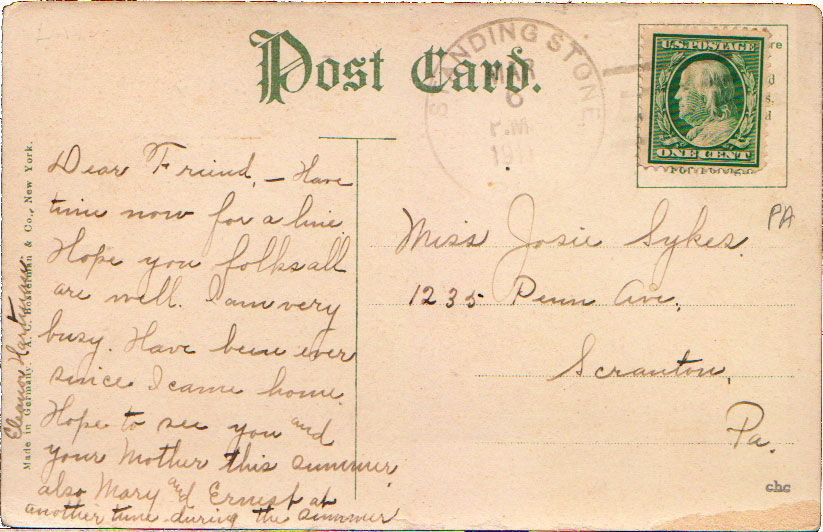 Post Card.
STANDING STONE,
MAR
6
P.M.
U.S. POSTAGE
ONE CENT
PA
Dear Friend, – Have
time now for a line.
Hope you folks all
are well. I am very
busy. Have been ever
since I came home.
Hope to see you and
your Mother this summer
also Mary and Ernest at
another time during the summer
Eleanor
Made in Germany. A. C. Bosselman & Co., New York.
Miss Josie Sykes.
1235 Penn Ave.
Scranton,
Pa.
chc